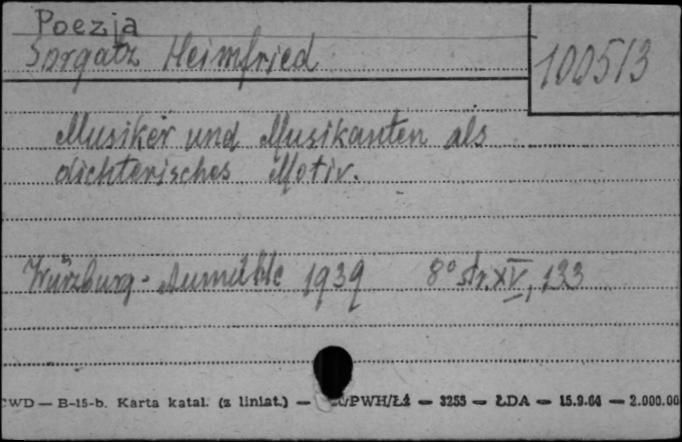 Poezja
Sorgatz Heimfried
100513
Musiker und Musikanten als
dichterisches Motiv.
Würzburg-Aumühle 1939 8° str. XV, 133
CWD — B-15-b. Karta katal. (z liniat.) — /PWH/Łź — 3255 — ŁDA — 15.9.64 — 2.000.00